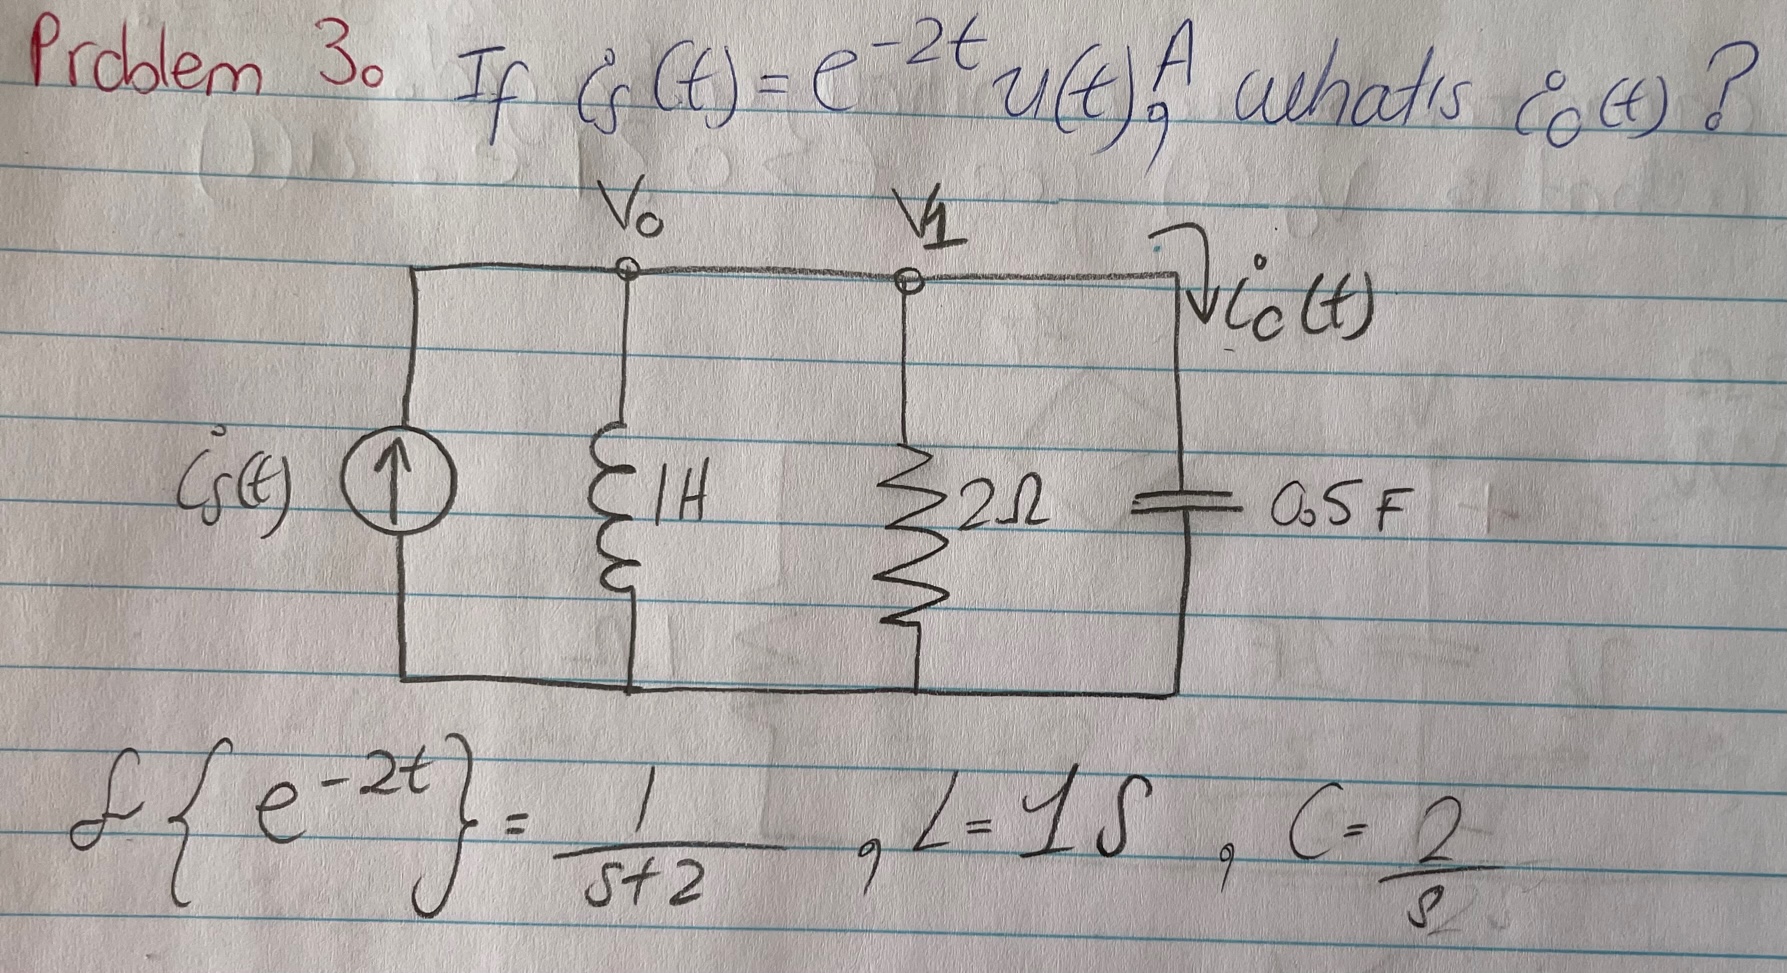 Problem 3. If is(t) = e^-2t u(t), A what's io(t)?
Vo V1
io(t)
is(t) 1H 2Ω 0.5F
ℒ{e^-2t} = 1/(s+2) , L = 1S , C = 2/s